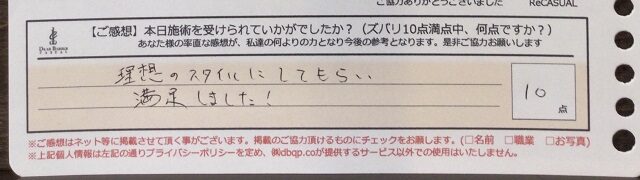 ご協力ありがとうございました　ReCASUAL
【ご感想】本日施術を受けられていかがでしたか？（ズバリ10点満点中、何点ですか？）
あなた様の率直な感想が、私達の何よりの力となり今後の参考となります。是非ご協力お願いします
理想のスタイルにしてもらい
満足しました！
10
点
※ご感想はネット等に掲載させて頂く事がございます。掲載のご協力頂けるものにチェックをお願します。（□名前　□職業　□お写真）
※上記個人情報は左記の通りプライバシーポリシーを定め、㈱dbqp.coが提供するサービス以外での使用はいたしません。